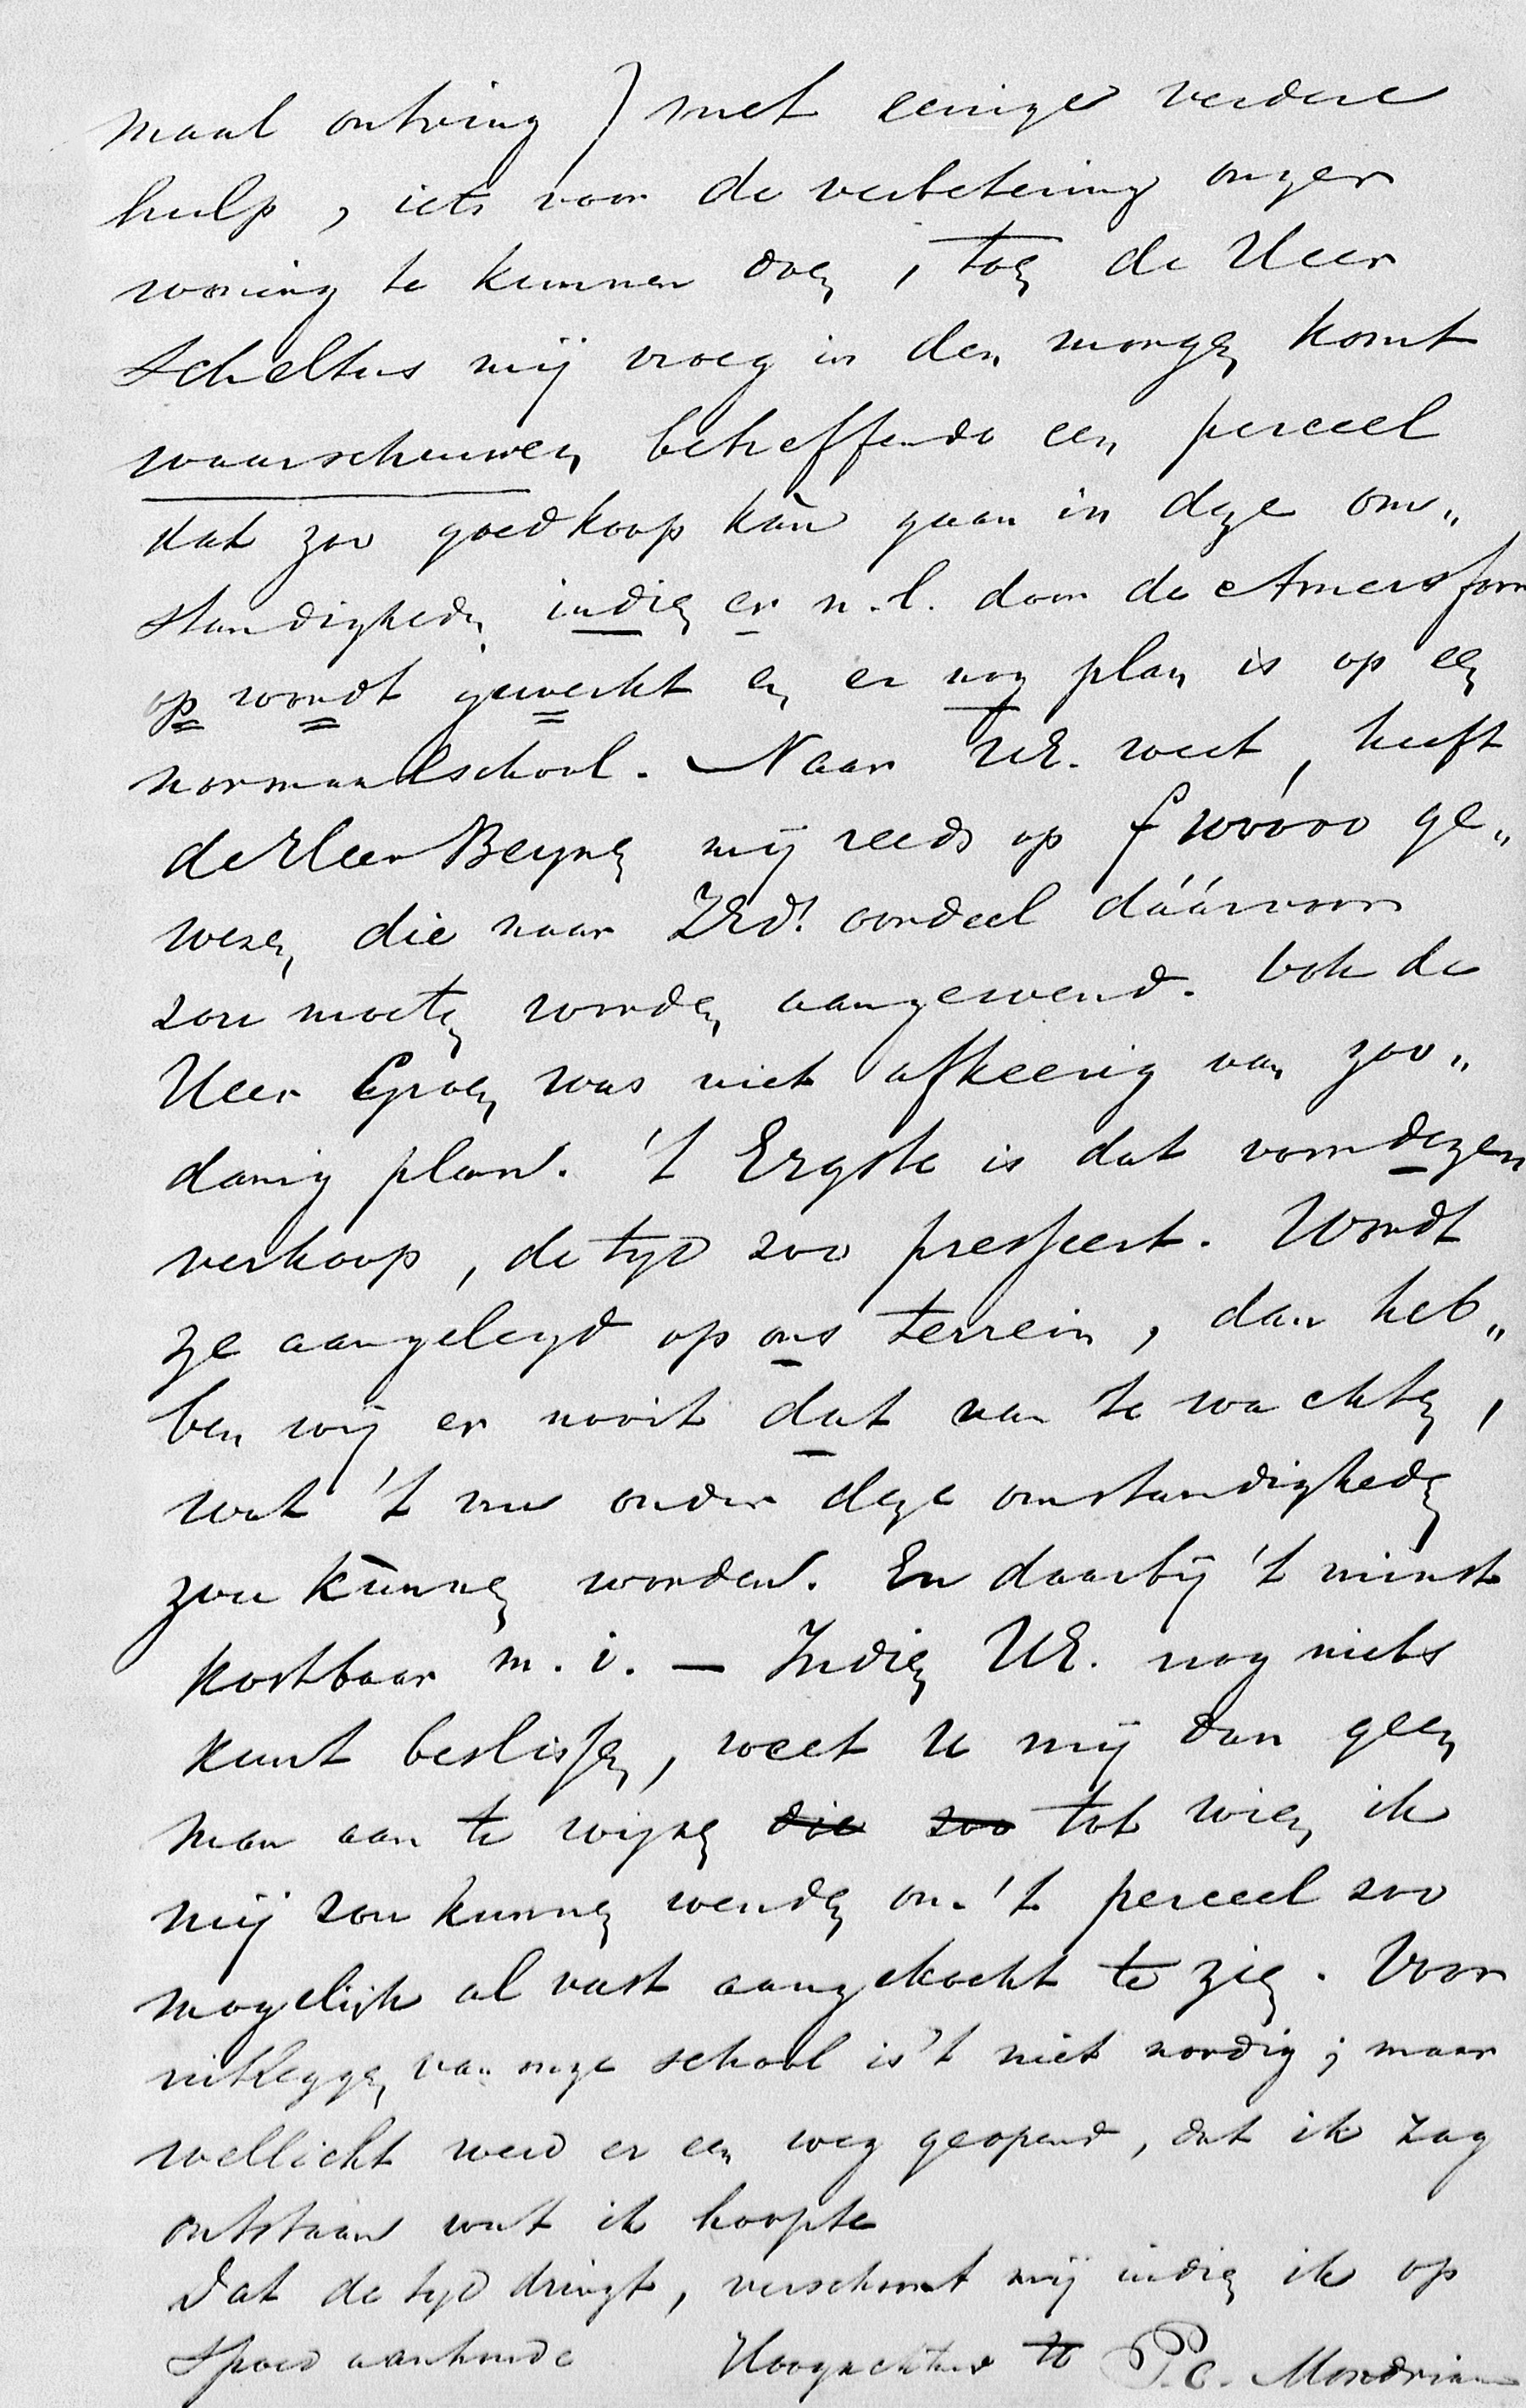 maal ontving) met eenige verdere
hulp, iets voor de verbetering onzer
woning te kunnen doen, toen de Heer
Scheltus mij vroeg in den morgen komt
waarschuwen betreffende een perceel
dat zoo goedkoop kàn gaan in deze om„
standigheden indien er n.l. door de Amersfoor
op wordt gewerkt en er nog plan is op een
normaalschool. Naar UE. weet, heeft
de Heer Beynen mij reeds op f gewe„
wezen, die naar ZEd! oordeel dáárvoor
zou moeten worden aangewend. Ook de
Heer Groen was niet afkeerig van zoo„
danig plan. 't Ergste is dat voor dezen
verkoop, de tijd zoo presseert. Wordt
ze aangelegd op ons terrein, dan heb„
ben wij er nooit dat van te wachten,
wat 't nu onder deze omstandigheden
zou kùnnen worden. En daarbij 't minst
kostbaar m.i. — Indien UE. nog niets
kunt beslissen, weet U mij dan geen
man aan te wijzen die zoo tot wien ik
mij zou kunnen wenden om 't perceel zoo
mogelijk al vast aangekocht te zien. Voor
uitleggen van onze school is 't niet noodig; maar
wellicht werd er een weg geopend, dat ik zag
ontstaan wat ik hoopte
Dat de tijd dringt, verschoont mij indien ik op
spoed aanhoude Hoogachtend P.C. Mondriaan